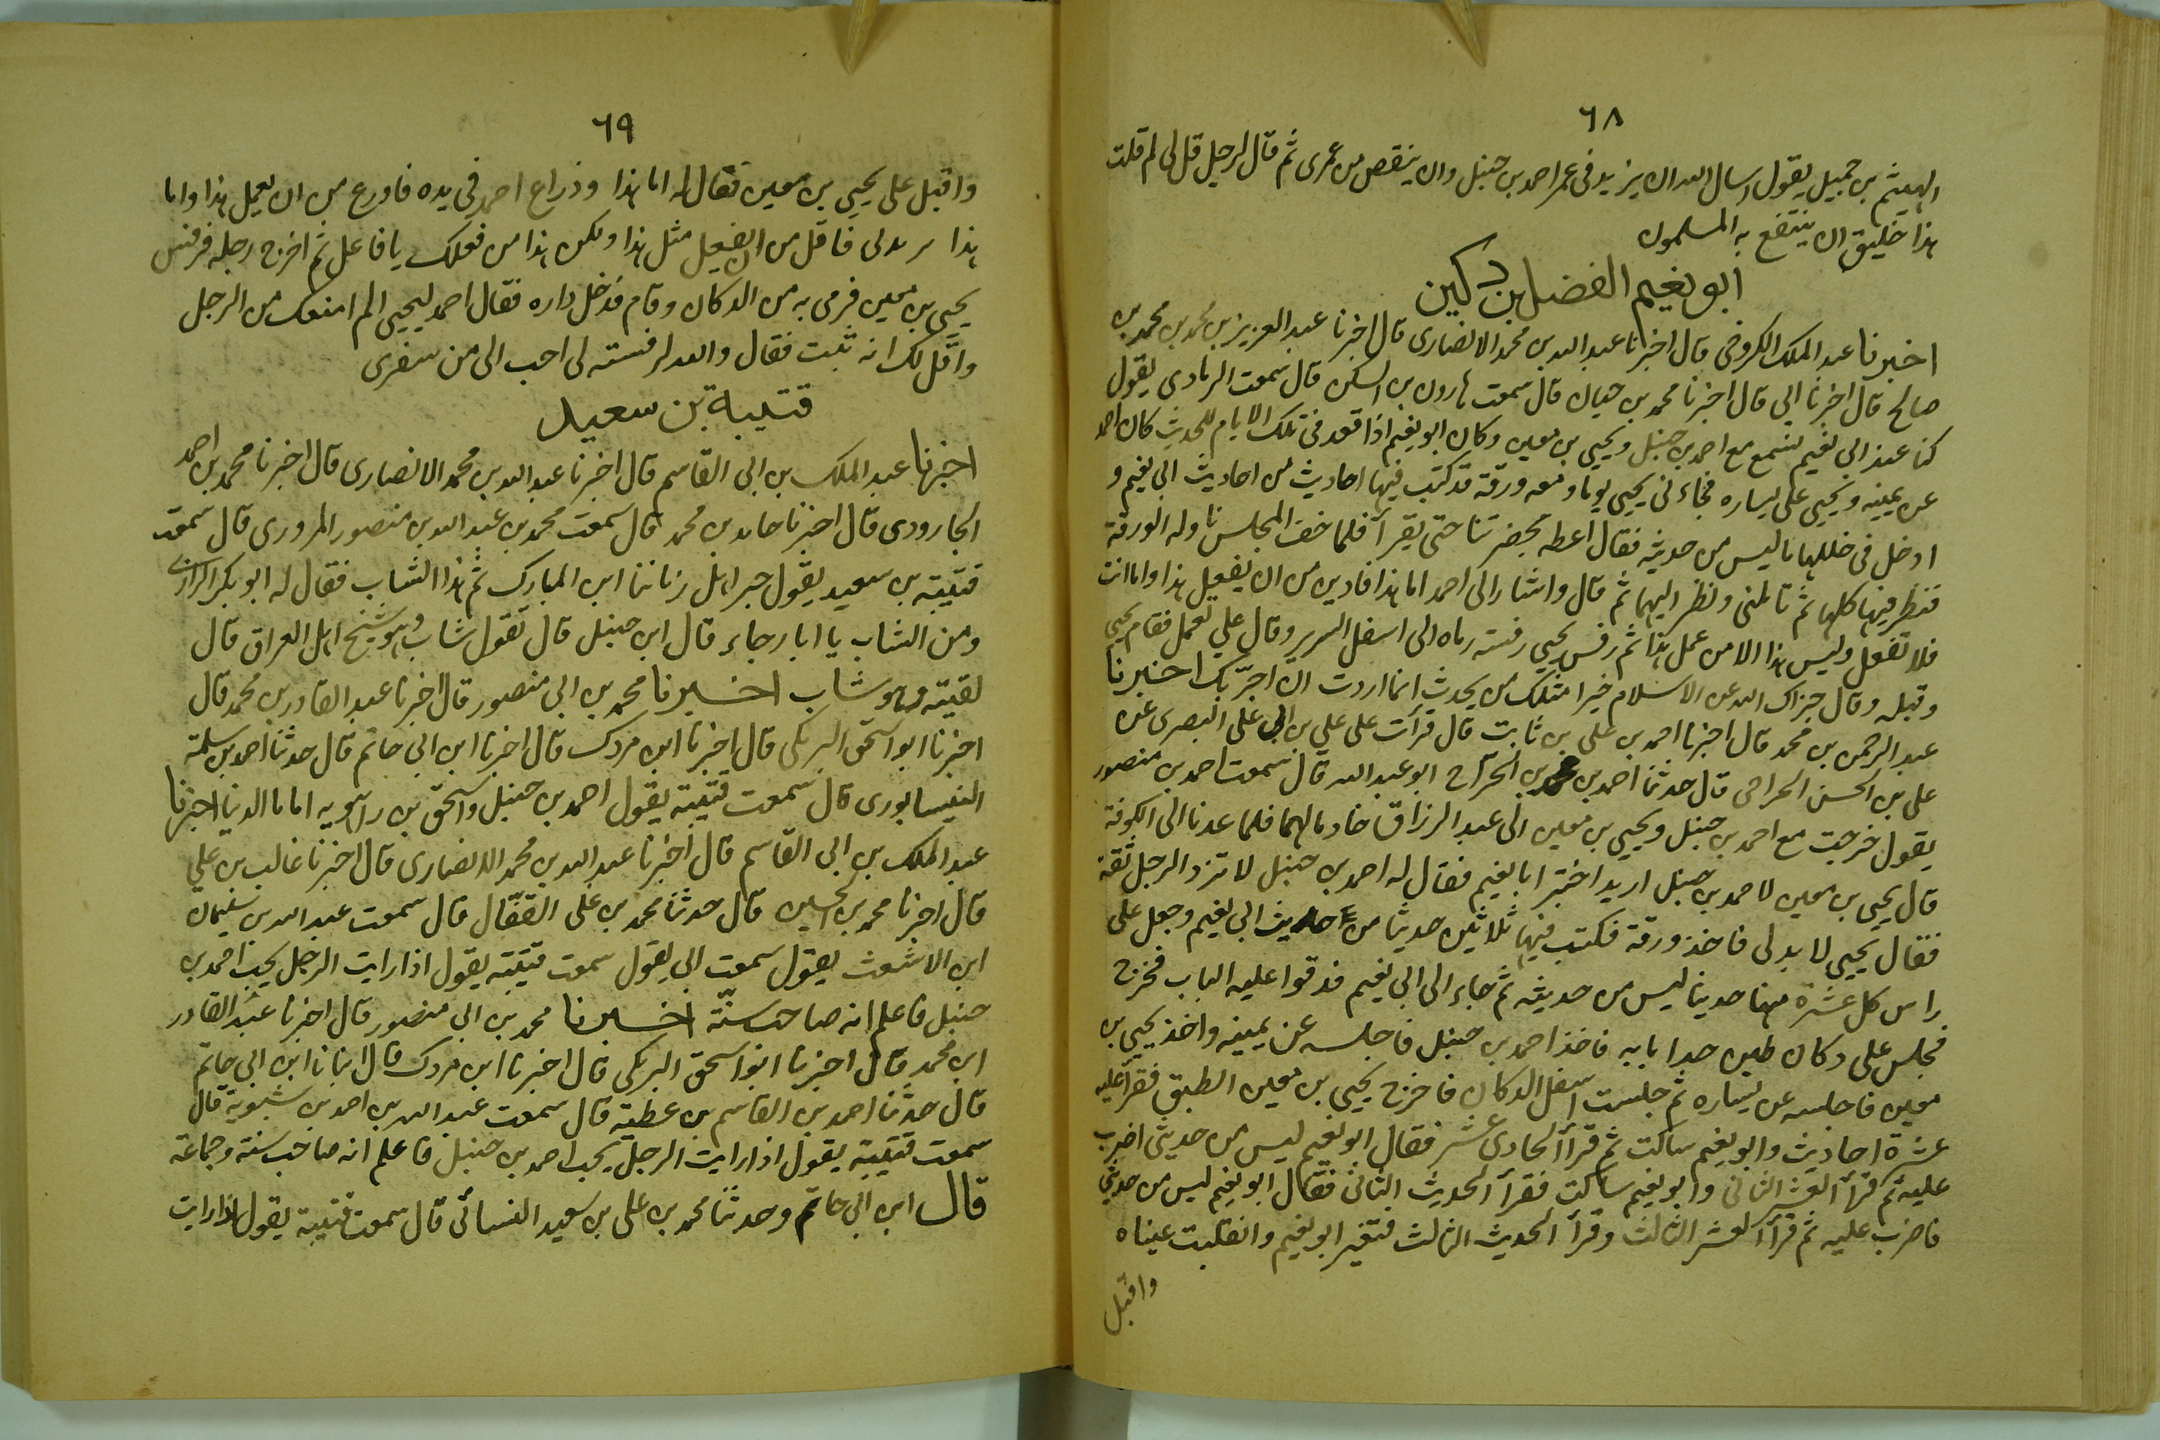 ٦٨
الهيثم بن جميل يقول اسال الله ان يزيد فى عمر احمد بن حنبل وان ينقص من عمرى ثم قال لرجل قل لى لم قلت
هذا خليق ان ينتفع به المسلمون
ابو نعيم الفضل بن دكين
اخبرنا عبد الملك الكروخى قال اخبرنا عبد الله بن محمد الانصارى قال اخبرنا عبد العزيز بن محمد بن محمد بن
صالح قال اخبرنا ابى قال اخبرنا محمد بن حبان قال سمعت هارون بن السكن قال سمعت الرمادى يقول
كنا عند ابى نعيم نسمع مع احمد بن حنبل ويحيى بن معين وكان ابو نعيم اذا قعد فى تلك الايام للحديث كان احمد
عن يمينه ويحيى على يساره فجاء نى يحيى يوما ومعه ورقة قد كتب فيها احاديث من احاديث ابى نعيم و
ادخل فى خللها ما ليس من حديثه فقال اعطه بحضرتنا حتى يقرأ فلما خف المجلس ناوله الورقة
فنظر فيها كلها ثم تاملنى ونظر اليهما ثم قال واشار الى احمد اما هذا فادين من ان يفعل هذا واما انت
فلا تفعل وليس هذا الا من عمل هذا ثم رفس يحيى رفسة رماه الى اسفل السرير وقال علي تعمل فقام يحيى
وقبله وقال جزاك الله عن الاسلام خيرا مثلك من يحدث انما اردت ان اجربك اخبرنا
عبد الرحمن بن محمد قال اخبرنا احمد بن على بن ثابت قال قرأت على على بن ابى على البصرى عن
على بن الحسن الجراحى قال حدثنا احمد بن محمد بن الجراح ابو عبد الله قال سمعت احمد بن منصور
يقول خرجت مع احمد بن حنبل ويحيى بن معين الى عبد الرزاق خادما لهما فلما عدنا الى الكوفة
قال يحيى بن معين لاحمد بن حنبل اريد اختبر ابا نعيم فقال له احمد بن حنبل لا تزد الرجل ثقة
فقال يحيى لا بد لى فاخذ ورقة فكتب فيها ثلاثين حديثا من احاديث ابى نعيم وجعل على
راس كل عشرة منها حديثا ليس من حديثه ثم جاء الى ابى نعيم فدقوا عليه الباب فخرج
فجلس على دكان طين حذا بابه فاخذ احمد بن حنبل فاجلسه عن يمينه واخذ يحيى بن
معين فاجلسه عن يساره ثم جلست اسفل الدكان فاخرج يحيى بن معين الطبق فقرأ عليه
عشرة احاديث وابو نعيم ساكت ثم قرأ الحادى عشر فقال ابو نعيم ليس من حديثى اضرب
عليه ثم قرأ العشر الثانى وابو نعيم ساكت فقرأ الحديث الثانى فقال ابو نعيم ليس من حديثى
فاضرب عليه ثم قرأ العشر الثالث وقرأ الحديث الثالث فتغير ابو نعيم وانقلبت عيناه
واقبل
٦٩
واقبل على يحيى بن معين فقال له اما هذا وذراع احمد فى يده فاورع من ان يعمل هذا واما
هذا يريدنى فاقل من ان يفعل مثل هذا ولكن هذا من فعلك يا فاعل ثم اخرج رجله فرفس
يحيى بن معين فرمى به من الدكان وقام فدخل داره فقال احمد ليحيى الم امنعك من الرجل
واقل لك انه ثبت فقال والله لرفسته لى احب الى من سفرى
قتيبة بن سعيد
اخبرنا عبد الملك بن ابى القاسم قال اخبرنا عبد الله بن محمد الانصارى قال اخبرنا محمد بن احمد
الجارودى قال اخبرنا حامد بن محمد قال سمعت محمد بن عبد الله بن منصور المروزى قال سمعت
قتيبة بن سعيد يقول خير اهل زماننا ابن المبارك ثم هذا الشاب فقال له ابو بكر الرازى
ومن الشاب يا ابا رجاء قال ابن حنبل قال تقول شاب وهو شيخ اهل العراق قال
لقيته وهو شاب اخبرنا محمد بن ابى منصور قال اخبرنا عبد القادر بن محمد قال
اخبرنا ابو اسحق البرمكى قال اخبرنا ابن مردك قال اخبرنا ابن ابى حاتم قال حدثنا احمد بن سلمة
النيسابورى قال سمعت قتيبة يقول احمد بن حنبل واسحق بن راهويه اماما الدنيا اخبرنا
عبد الملك بن ابى القاسم قال اخبرنا عبد الله بن محمد الانصارى قال اخبرنا غالب بن على
قال اخبرنا محمد بن الحسين قال حدثنا محمد بن على القفال قال سمعت عبد الله بن سليمان
ابن الاشعث يقول سمعت ابى يقول سمعت قتيبة يقول اذا رايت الرجل يحب احمد بن
حنبل فاعلم انه صاحب سنة اخبرنا محمد بن ابى منصور قال اخبرنا عبد القادر
ابن محمد قال اخبرنا ابو اسحق البرمكى قال اخبرنا ابن مردك قال انبانا ابن ابى حاتم
قال حدثنا احمد بن القاسم بن عطية قال سمعت عبد الله بن احمد بن شبوية قال
سمعت قتيبة يقول اذا رايت الرجل يحب احمد بن حنبل فاعلم انه صاحب سنة وجماعة
قال ابن ابى حاتم وحدثنا محمد بن على بن سعيد النسائى قال سمعت قتيبة يقول اذا رايت